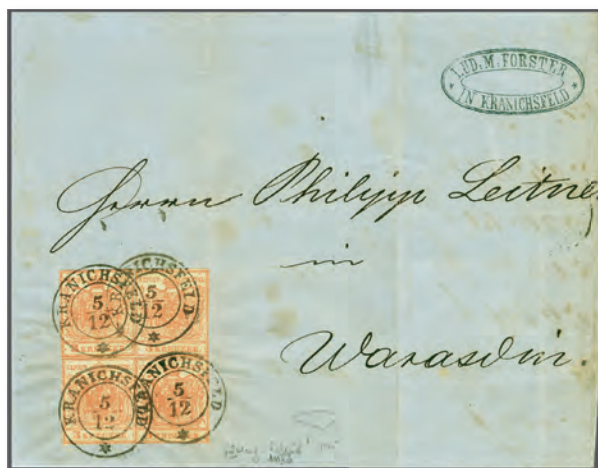 LUD. M. FORSTER
* IN KRANICHSFELD *
Herrn Philipp Leitne
in
Warasdin.
KRANICHSFELD
5
12
*
KRANICHSFELD
5
2
KRANICHSFELD
5
12
*
KRANICHSFELD
5
12
*